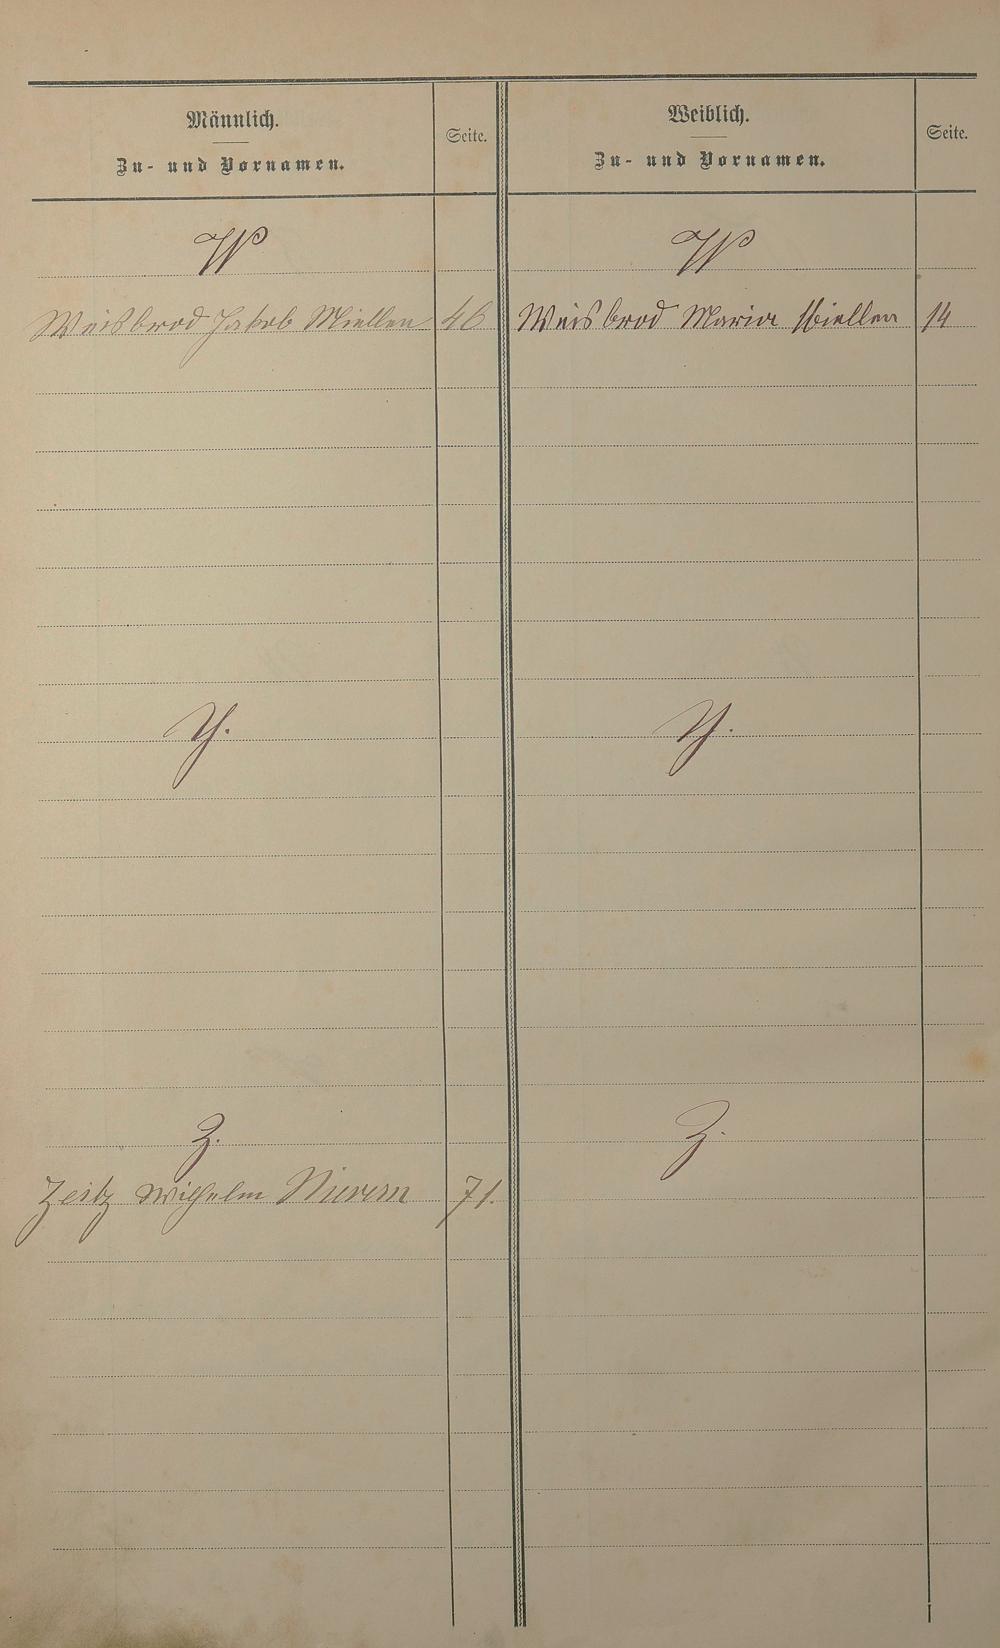 Männlich.
Zu- und Vornamen.
Seite.
Weiblich.
Zu- und Vornamen.
Seite.
W
W
Weisbrod Jakob Miellen 46
Weisbrod Maria Miellen 14
Y.
Y.
Z.
Z.
Zeitz Wilhelm Nievern 71.